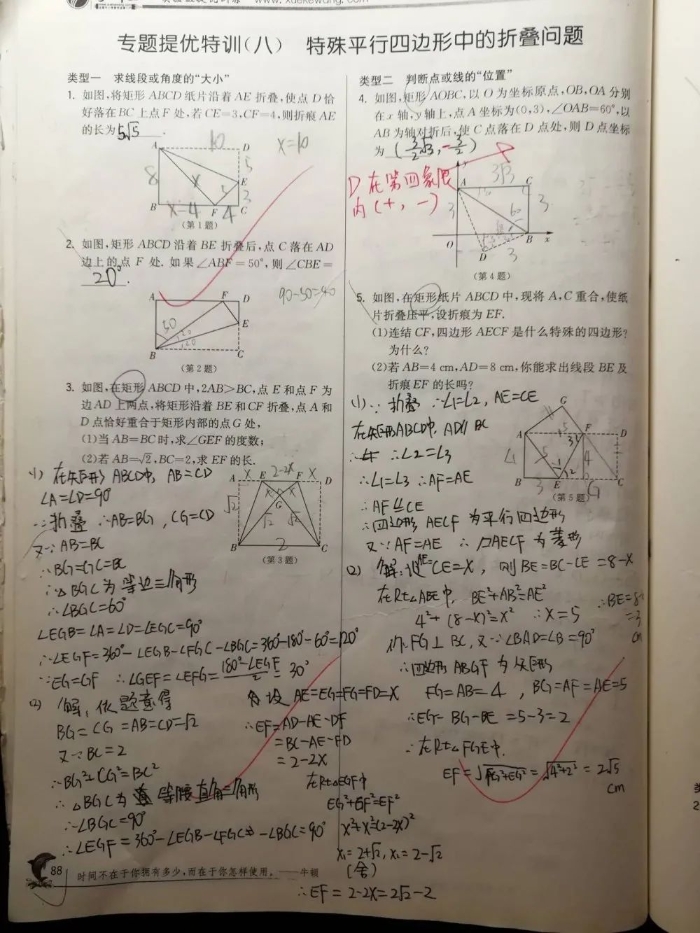 www.xuekewang.
专题提优特训(八) 特殊平行四边形中的折叠问题
类型一 求线段或角度的“大小”
1. 如图,将矩形 ABCD 纸片沿着 AE 折叠,使点 D 恰
好落在 BC 上点 F 处,若 CE=3,CF=4,则折痕 AE
的长为 5√5 .
10
x=10
A D
8 x 5 5
E
3
B x-4 F 4 C
(第 1 题)
2. 如图,矩形 ABCD 沿着 BE 折叠后,点 C 落在 AD
边上的点 F 处. 如果∠ABF=50°,则∠CBE=
20° .
90-50=40
A F D
50
E
B C
(第 2 题)
3. 如图,在矩形 ABCD 中,2AB>BC,点 E 和点 F 为
边 AD 上两点,将矩形沿着 BE 和 CF 折叠,点 A 和
D 点恰好重合于矩形内部的点 G 处,
(1)当 AB=BC 时,求∠GEF 的度数;
(2)若 AB=√2,BC=2,求 EF 的长.
A x E 2-2x F x D
√2 G
√2 √2
B 2 C
(第 3 题)
(1) 在矩形 ABCD中, AB=CD
∠A=∠D=90°
∵折叠 ∴AB=BG, CG=CD
又∵AB=BC
∴BG=GC=BC
∴△BGC为等边三角形
∴∠BGC=60°
∠EGB=∠A=∠D=∠FGC=90°
∴∠EGF=360°-∠EGB-∠FGC-∠BGC=360°-180°-60°=120°
∵EG=GF ∴∠GEF=∠EFG=(180°-∠EGF)/2=30°
(2) 解:依题意得
BG=CG=AB=CD=√2
又∵BC=2
∴BG²+CG²=BC²
∴△BGC为等腰直角三角形
∴∠BGC=90°
∴∠EGF=360°-∠EGB-∠FGC-∠BGC=90°
设 AE=EG=FG=FD=x
∴EF=AD-AE-DF
=BC-AE-FD
=2-2x
在Rt△EGF中
EG²+GF²=EF²
x²+x²=(2-2x)²
x₁=2+√2, x₂=2-√2
(舍)
∴EF=2-2x=2√2-2
88 时间不在于你拥有多少,而在于你怎样使用。——牛顿
类型二 判断点或线的“位置”
4. 如图,矩形 AOBC,以 O 为坐标原点,OB,OA 分别
在 x 轴,y 轴上,点 A 坐标为(0,3),∠OAB=60°,以
AB 为轴对折后,使 C 点落在 D 点处,则 D 点坐标
为 (3/2√3,-3/2)
D在第四象限
内(+,-)
A 3√3 C
3 3
60
O B x
D 3
(第 4 题)
5. 如图,在矩形纸片 ABCD 中,现将 A,C 重合,使纸
片折叠压平,设折痕为 EF.
(1)连结 CF,四边形 AECF 是什么特殊的四边形?
为什么?
(2)若 AB=4 cm,AD=8 cm,你能求出线段 BE 及
折痕 EF 的长吗?
G
A F D
4 5 3 4
1 2
B 3 E G
(第 5 题)
(1)∵折叠 ∴∠1=∠2, AE=CE
在矩形ABCD中, AD∥BC
∴∠2=∠3
∴∠1=∠3 ∴AF=AE
∴AF∥CE
∴四边形 AECF 为平行四边形
又∵AF=AE ∴▱AECF为菱形
(2) 解:设AE=CE=x, 则BE=BC-CE=8-x
在Rt△ABE中, BE²+AB²=AE²
4²+(8-x)²=x² ∴x=5
∴BE=8-
=3
cm
作FG⊥BC, 又∵∠BAD=∠B=90°
∴四边形 ABGF为矩形
FG=AB=4, BG=AF=AE=5
∴EG=BG-BE=5-3=2
∴在Rt△FGE中,
EF=√(FG²+EG²)=√(4²+2²)=2√5
cm